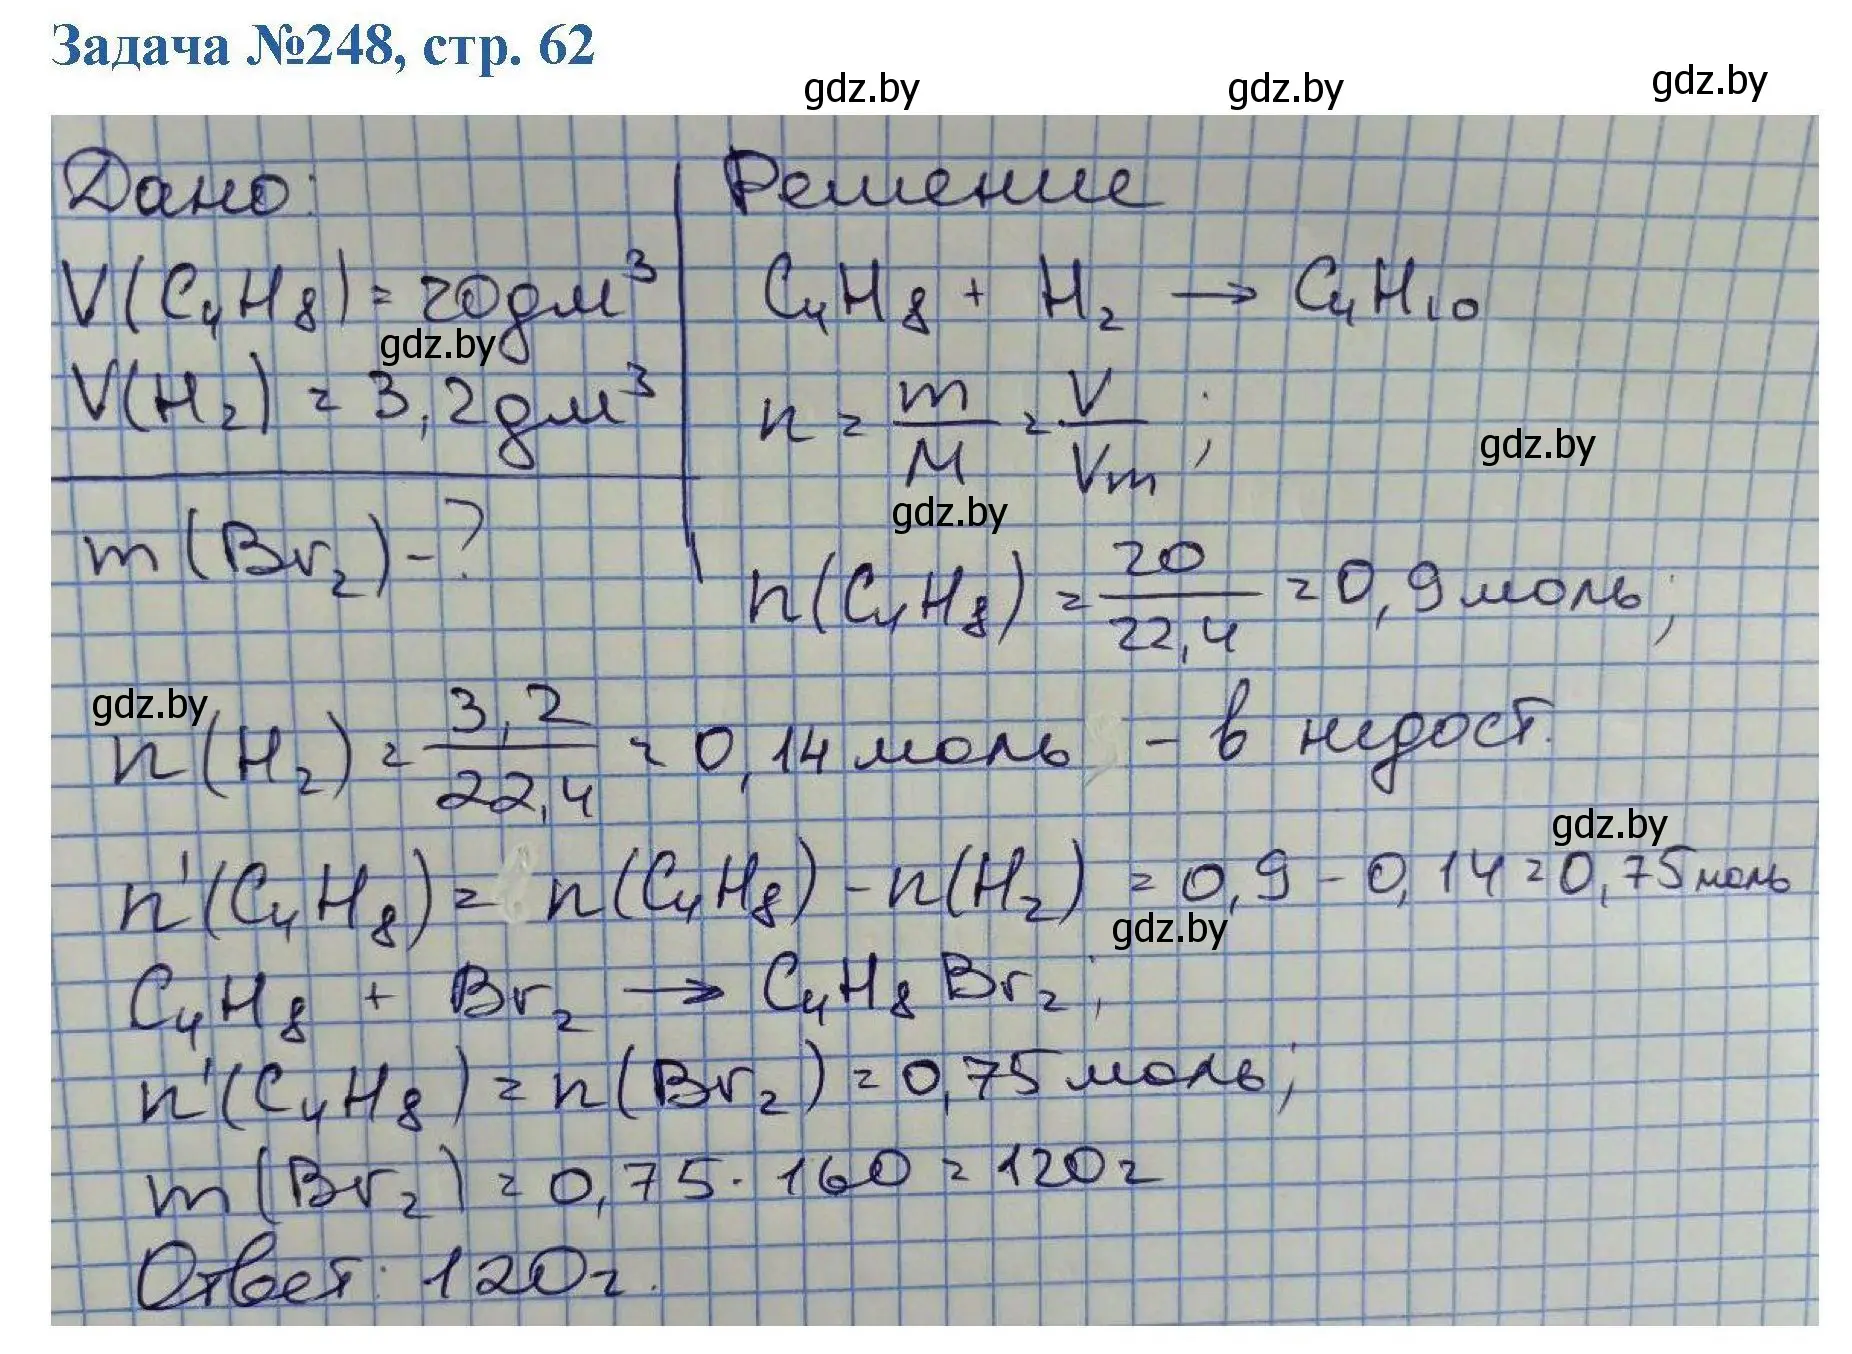 Задача №248, стр. 62
gdz.by gdz.by gdz.by
Дано:
V(C₄H₈) = 20дм³
gdz.by
V(H₂) = 3,2дм³
m(Br₂) - ?
Решение
C₄H₈ + H₂ → C₄H₁₀
n = m/M = V/Vm;
gdz.by
gdz.by
n(C₄H₈) = 20/22,4 = 0,9 моль;
gdz.by
n(H₂) = 3,2/22,4 = 0,14 моль - в недост.
gdz.by
n'(C₄H₈) = n(C₄H₈) - n(H₂) = 0,9 - 0,14 = 0,75 моль
gdz.by
C₄H₈ + Br₂ → C₄H₈Br₂;
n'(C₄H₈) = n(Br₂) = 0,75 моль;
m(Br₂) = 0,75 · 160 = 120г
Ответ: 120г.